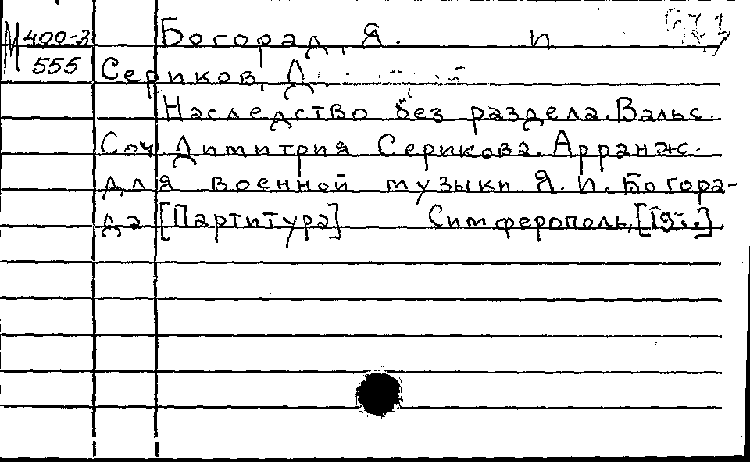 М 400-3
555
Богорад, Я. И
Сериков, Д.
Наследство без раздела. Вальс.
Соч Димитрия Серикова. Арранж.
для военной музыки Я. И. Богора-
да [Партитура] Симферополь, [19-г.]